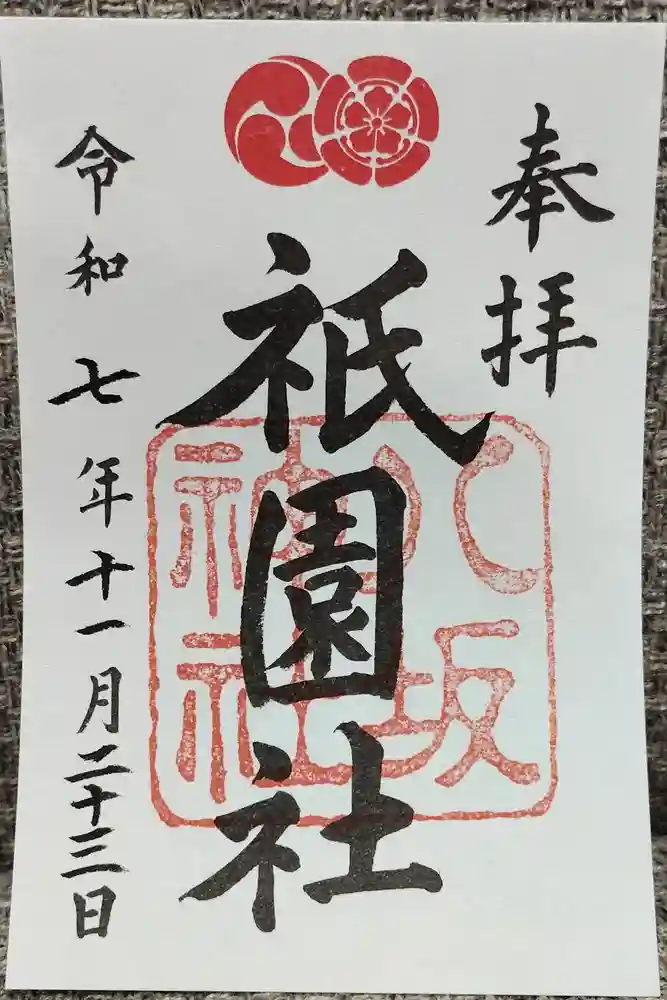 奉拝
祇園社
八坂
神社
令和七年十一月二十三日